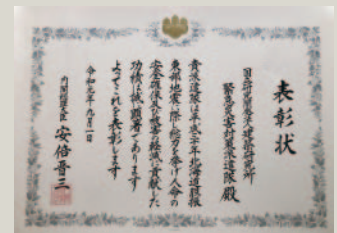 表彰状
国立研究開発法人建築研究所
緊急災害対策派遣隊 殿
貴派遣隊は平成三十年北海道胆振
東部地震に際し総力を挙げ人命の
安全確保及び被害の軽減に貢献した
功績は誠に顕著であります
よってこれを表彰します
令和元年九月一日
内閣総理大臣 安倍晋三